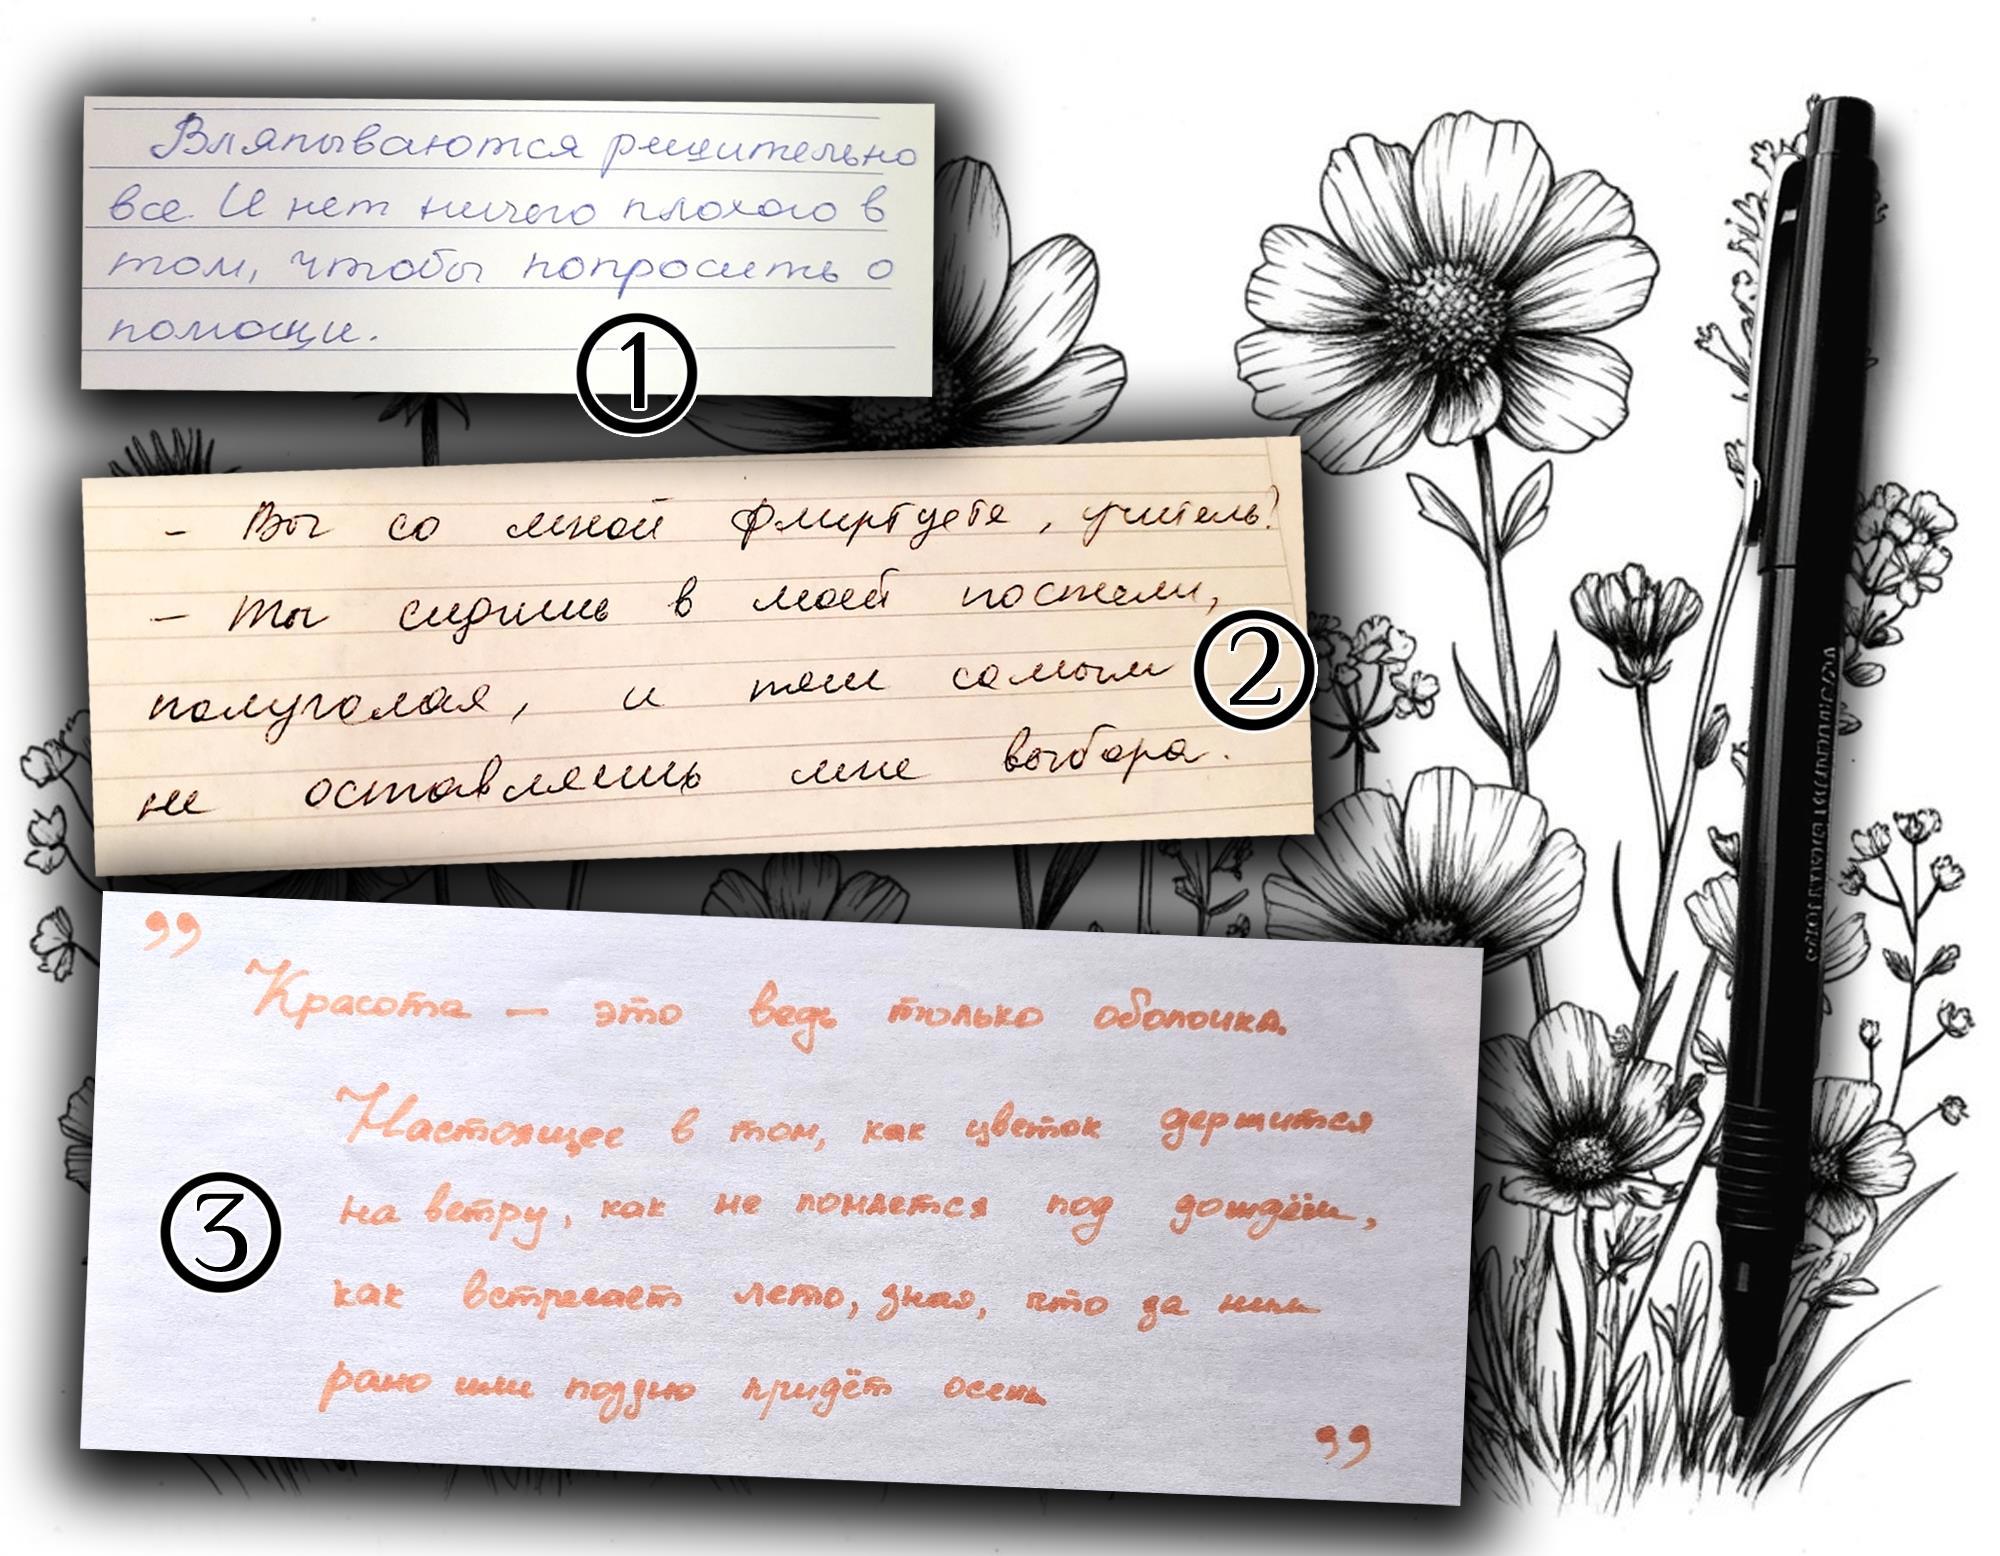 Вляпываются решительно
все. И нет ничего плохого в
том, чтобы попросить о
помощи.
1
– Вы со мной флиртуете, учитель?
– Ты сидишь в моей постели,
полуголая, и тем самым
не оставляешь мне выбора.
2
”
Красота — это ведь только оболочка.
Настоящее в том, как цветок держится
на ветру, как не ломается под дождём,
как встречает лето, зная, что за ним
рано или поздно придёт осень
”
3